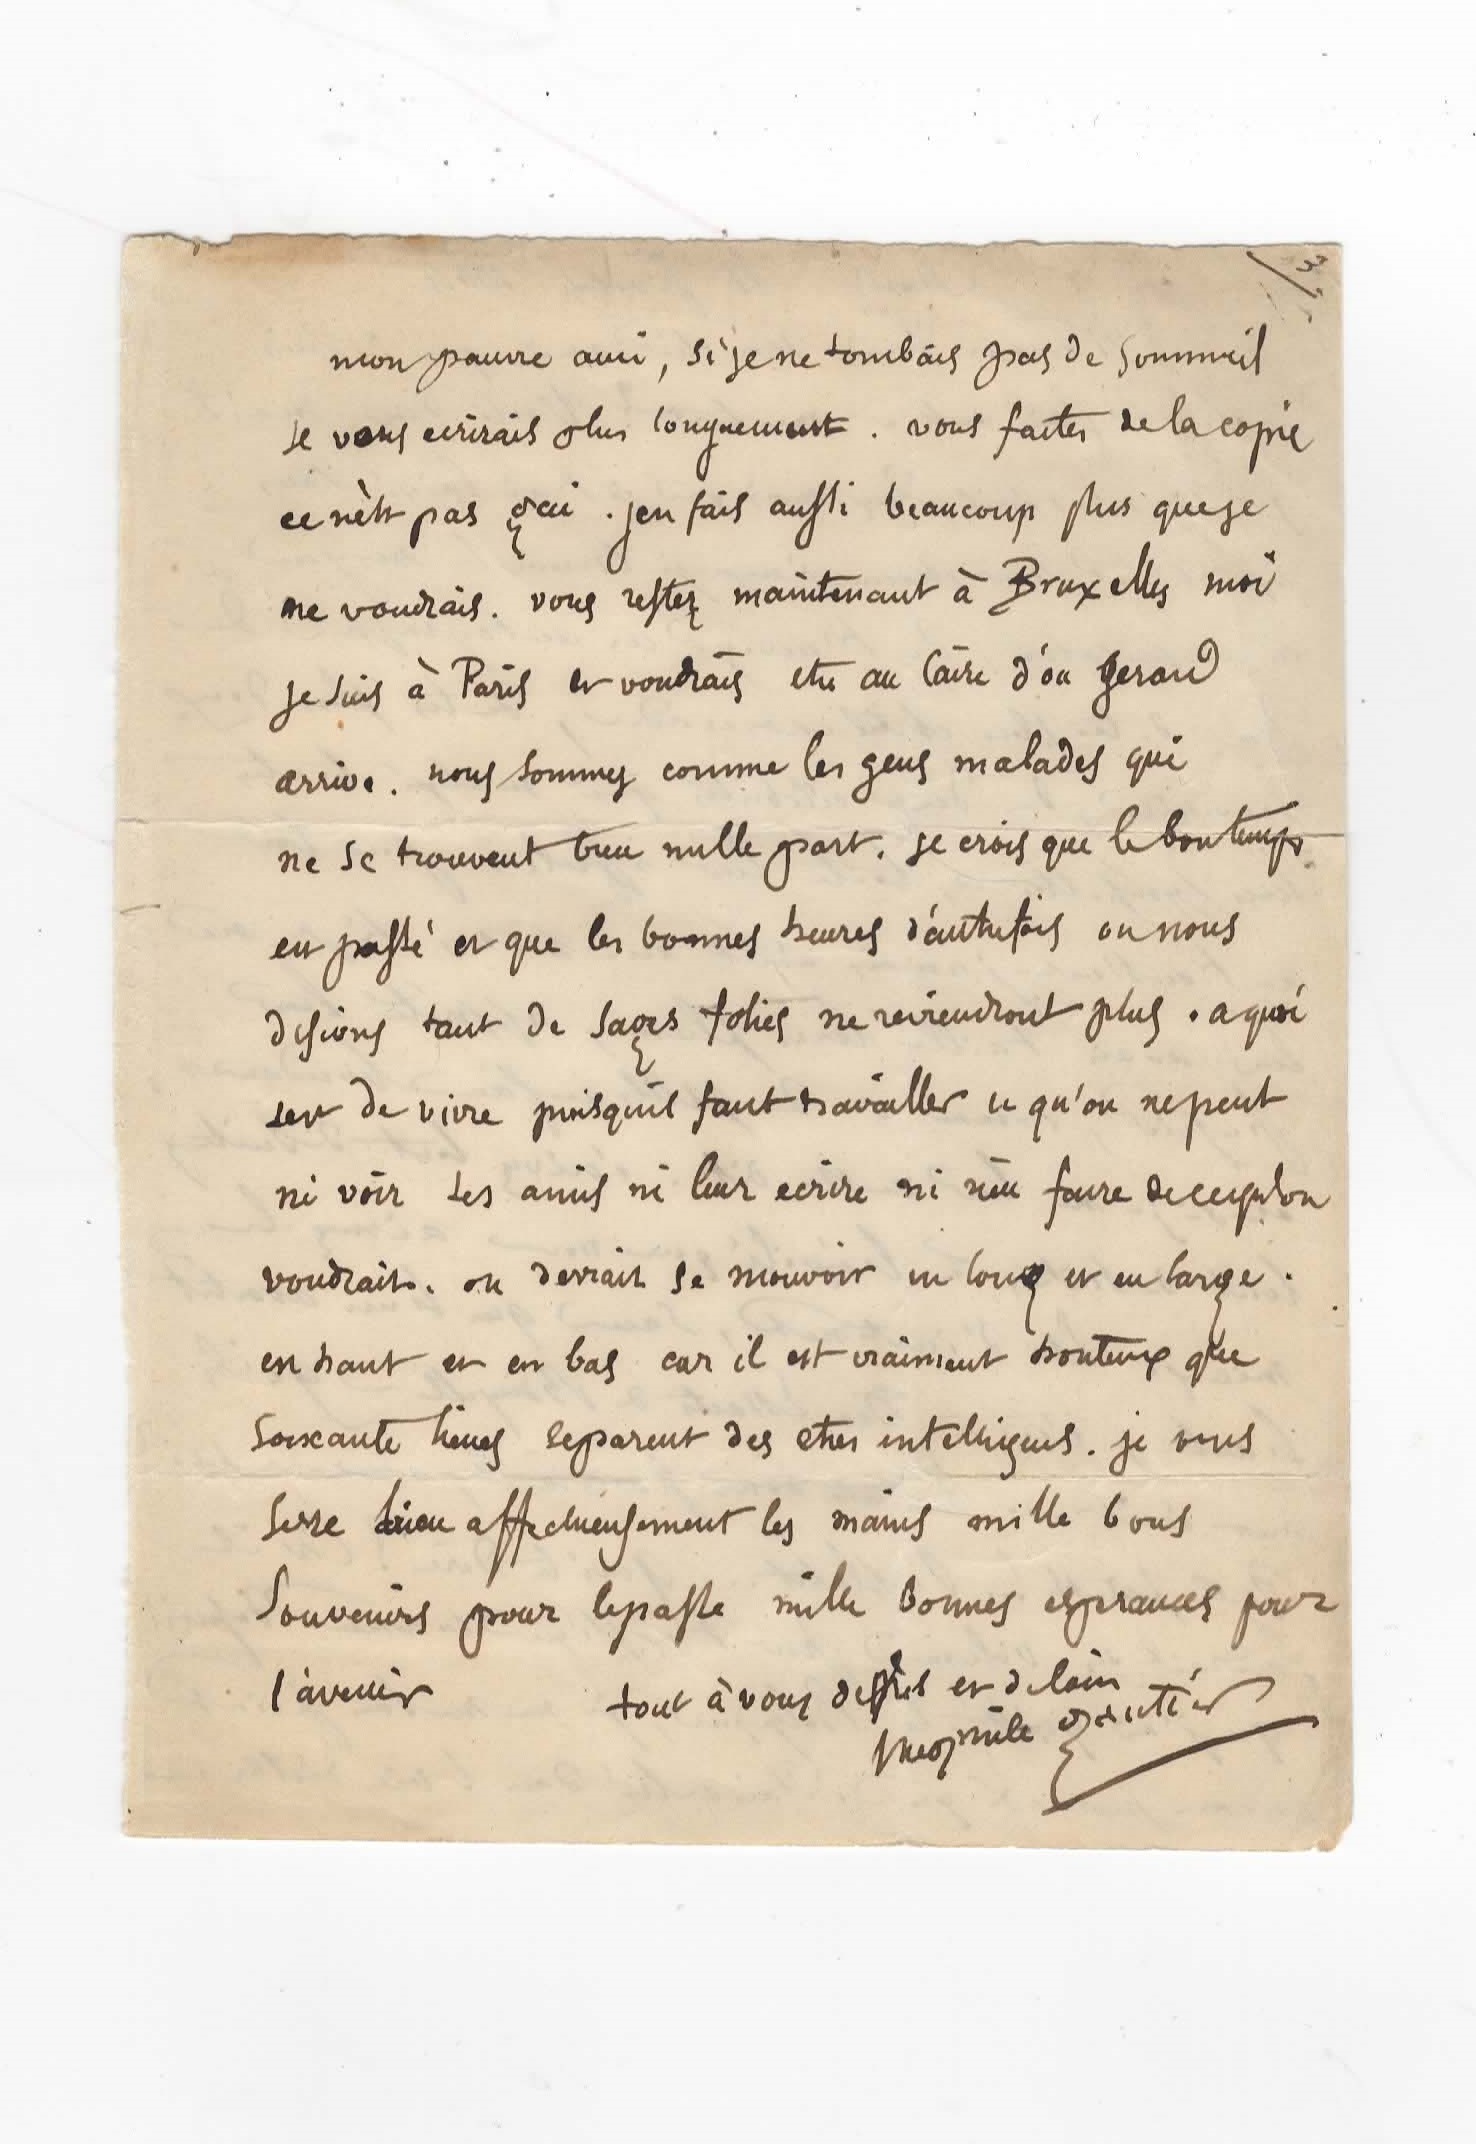 3
mon pauvre ami, si je ne tombais pas de sommeil
je vous ecrirais plus longuement. vous faites de la copie
ce n'est pas gai. j'en fais aussi beaucoup plus que je
ne voudrais. vous restez maintenant à Bruxelles moi
je suis à Paris et voudrais etre au Caire d'ou Gerard
arrive. nous sommes comme les gens malades qui
ne se trouvent bien nulle part. je crois que le bon temps
est passé et que les bonnes heures d'autrefois ou nous
disions tant de sages folies ne reviendront plus. a quoi
sert de vivre puisqu'il faut travailler et qu'on ne peut
ni voir ses amis ni leur ecrire ni rien faire de ce qu'on
voudrait. on devrait se mouvoir en long et en large.
en haut et en bas car il est vraiment honteux que
soixante lieues separent des etres intelligens. je vous
serre bien affectueusement les mains mille bons
souvenirs pour le passé mille bonnes esperances pour
l'avenir
tout à vous de près et de loin
theophile gautier